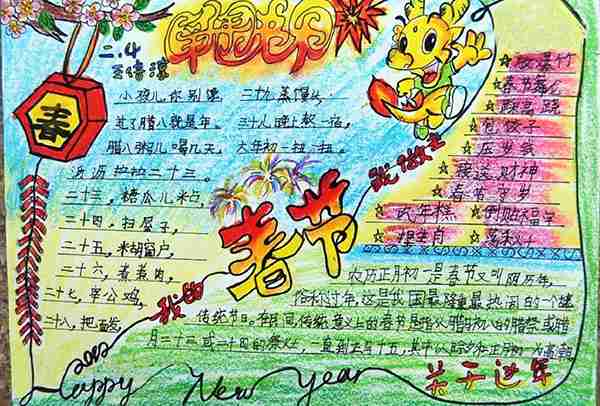 二.4
春
小孩儿你别馋, 二十九蒸馒头,
过了腊八就是年。 三十儿晚上熬一宿,
腊八粥儿喝几天, 大年初一扭一扭。
沥沥拉拉二十三。
二十三,糖瓜儿粘,
二十四,扫屋子,
二十五,米胡窗户,
二十六,煮煮肉,
二十七,宰公鸡,
二十八,把面发
放爆竹
春节
踩高跷
包饺子
压岁钱
接送财神
春节守岁
吃年糕 倒贴福字
生肖 荡秋千
我的 春节 我做主
农历正月初一是春节又叫阴历年,
俗称过年。这是我国最隆重最热闹的一个
传统节日。在民间,传统意义上的春节是指从腊月初八的腊祭或腊
月二十三或二十四的祭灶,一直到正月十五,其中以除夕和正月初一为高潮
Happy New Year
关于过年